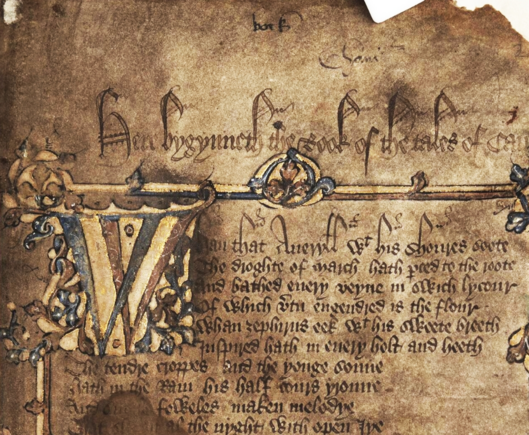 Here bygynneth the Book of the tales of Cau
Whan that Aueryll wt his shoures soote
The droghte of march hath pced to the roote
And bathed euery veyne in swich lycour
Of which vtu engendred is the flour
Whan zephirus eek wt his sweete breeth
Inspired hath in euery holt and heeth
The tendre croppes and the yonge sonne
Hath in the Ram his half cours yronne
And foweles maken melodye
al the nyght with open Iye